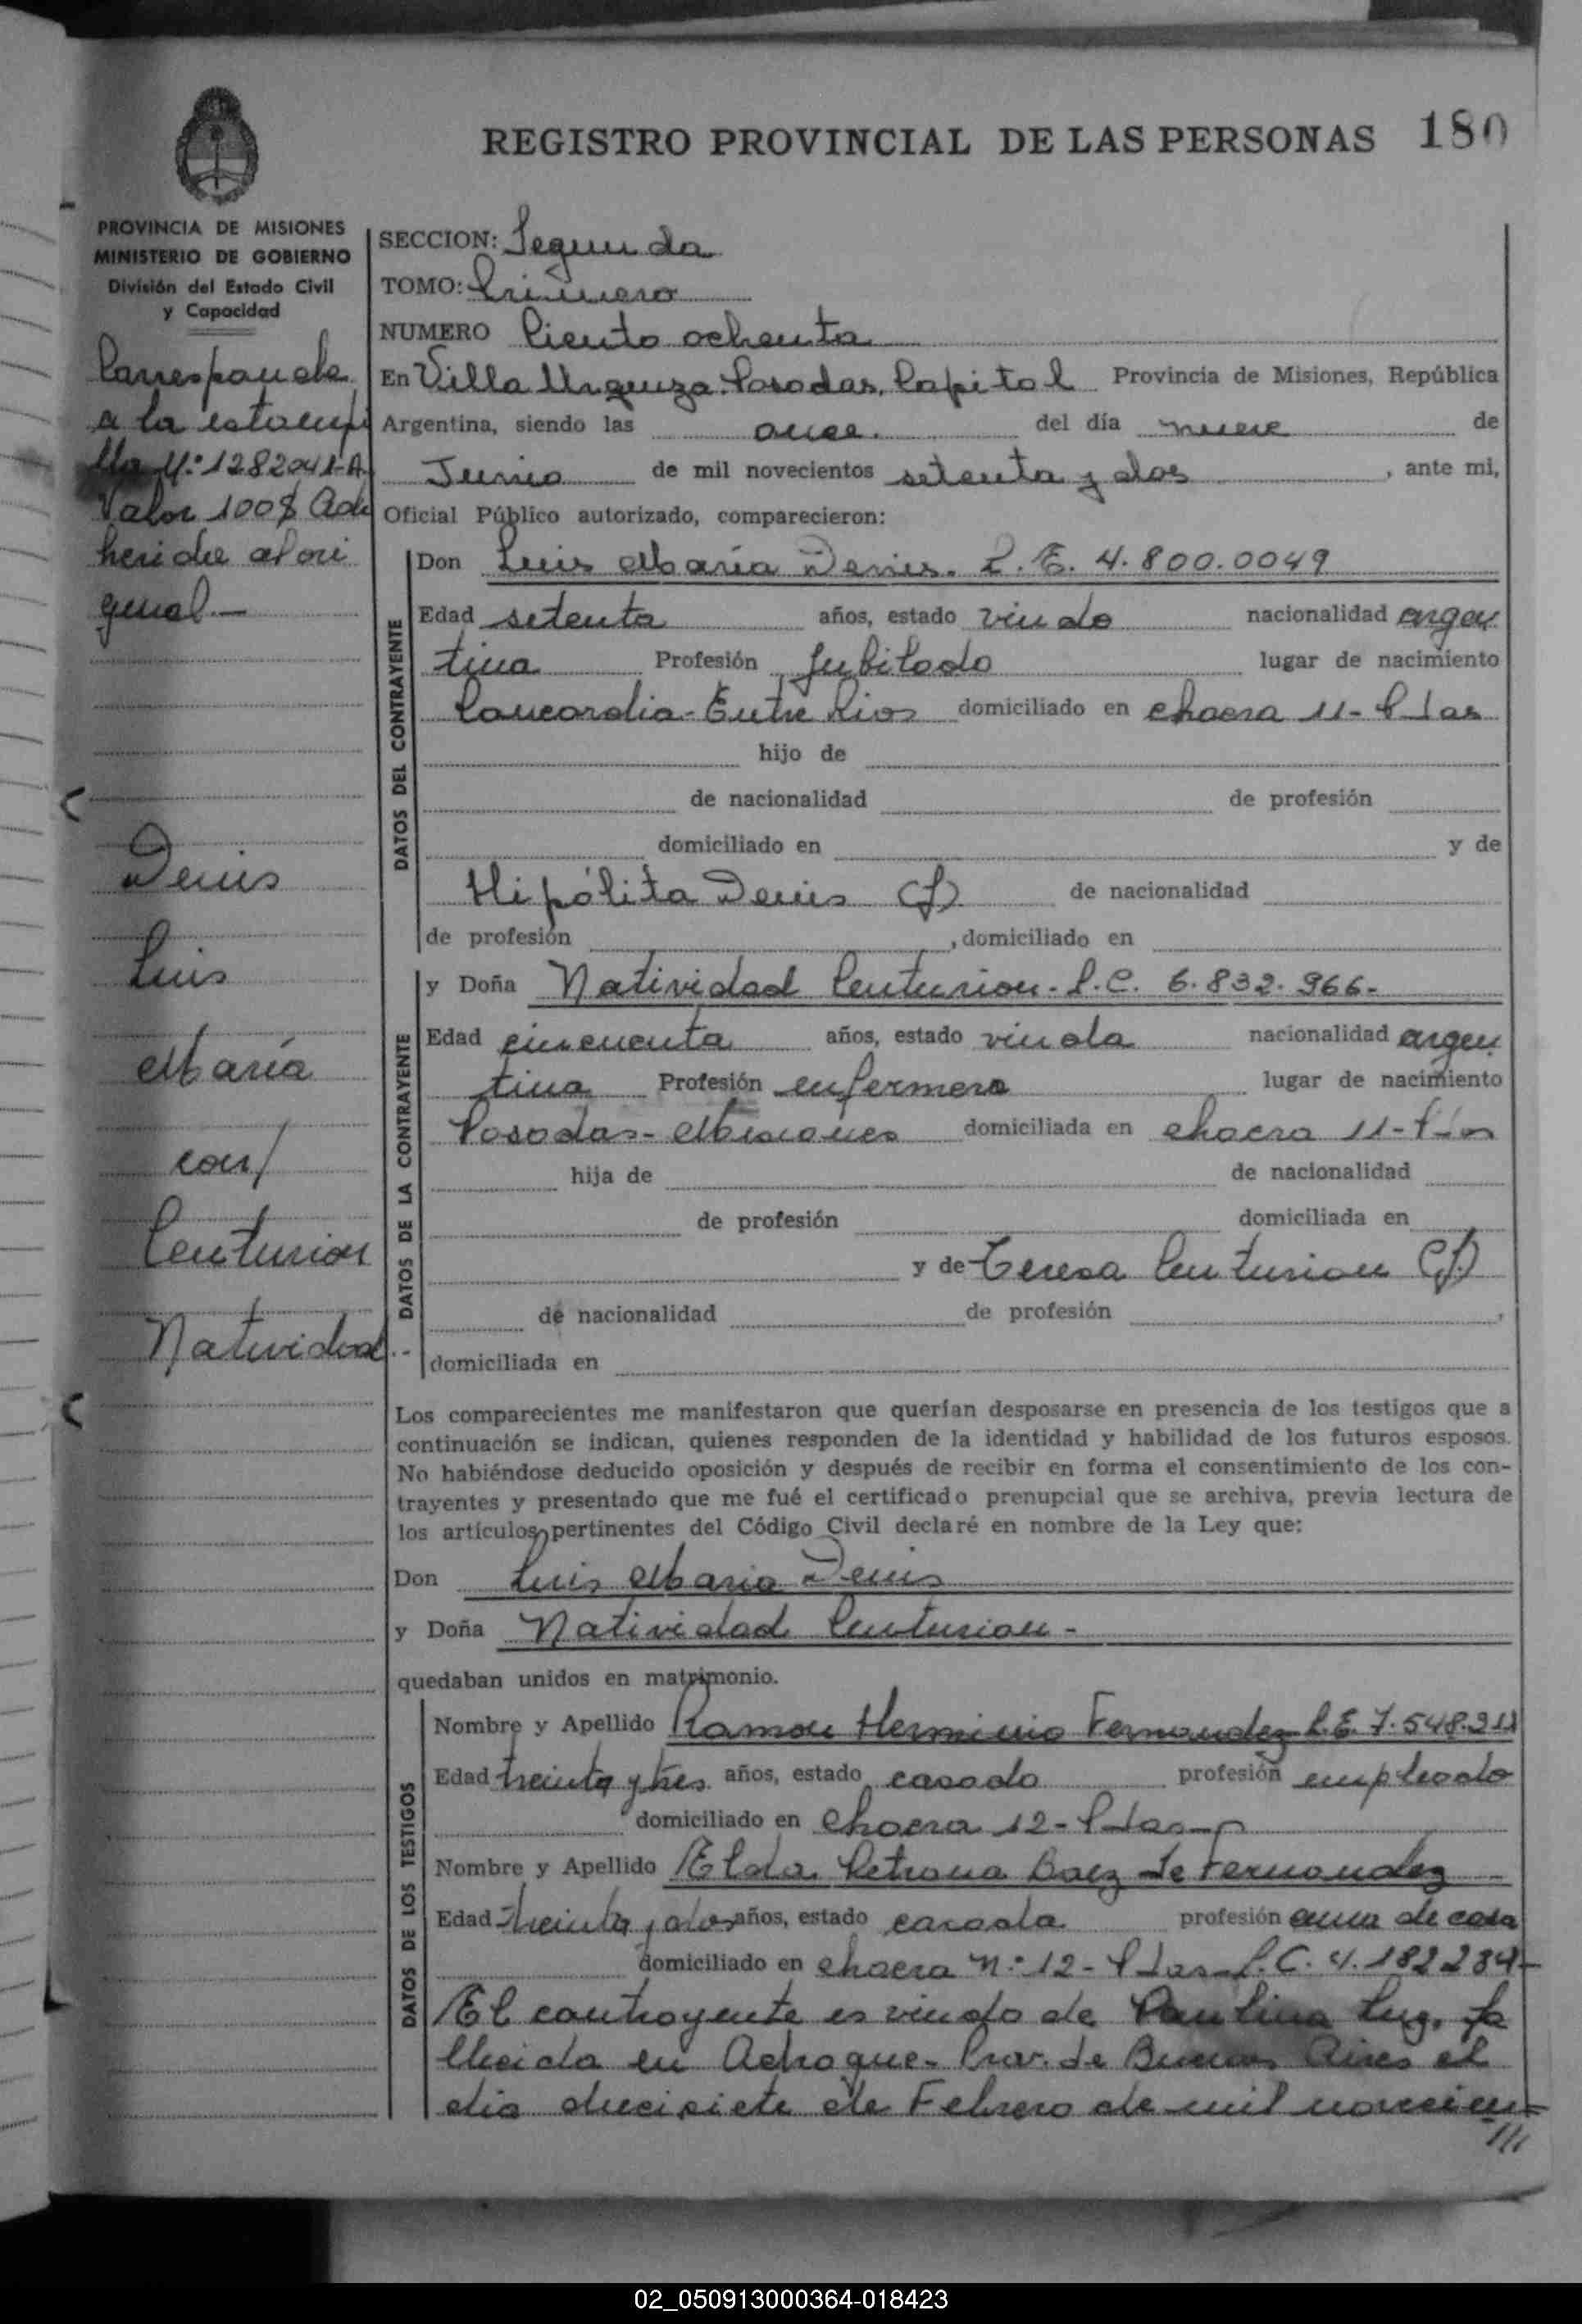 REGISTRO PROVINCIAL DE LAS PERSONAS 180
PROVINCIA DE MISIONES
MINISTERIO DE GOBIERNO
División del Estado Civil
y Capacidad
Corresponde
a la estampi
lla Nº 1282041-A.
Valor 100$ Ad
herida al ori
ginal -
Denis
Luis
María
con/
Centurion
Natividad.-
SECCION: Segunda
TOMO: Primero
NUMERO Ciento ochenta
En Villa Urquiza. Posadas, Capital Provincia de Misiones, República
Argentina, siendo las once. del día nueve de
Junio de mil novecientos setenta y dos , ante mi,
Oficial Público autorizado, comparecieron:
DATOS DEL CONTRAYENTE
Don Luis María Denis. L.E. 4.800.0049
Edad setenta años, estado viudo nacionalidad argen
tina Profesión jubilado lugar de nacimiento
Concordia-Entre Rios domiciliado en chacra 11- Pdas
hijo de
de nacionalidad de profesión
domiciliado en y de
Hipólita Denis (f) de nacionalidad
de profesión , domiciliado en
DATOS DE LA CONTRAYENTE
y Doña Natividad Centurion.- L.C. 6.832.966-
Edad cincuenta años, estado viuda nacionalidad argen
tina Profesión enfermera lugar de nacimiento
Posadas- Misiones domiciliada en chacra 11-
hija de de nacionalidad
de profesión domiciliada en
y de Teresa Centurion (f)
de nacionalidad de profesión ,
domiciliada en
Los comparecientes me manifestaron que querían desposarse en presencia de los testigos que a
continuación se indican, quienes responden de la identidad y habilidad de los futuros esposos.
No habiéndose deducido oposición y después de recibir en forma el consentimiento de los con-
trayentes y presentado que me fué el certificado prenupcial que se archiva, previa lectura de
los artículos pertinentes del Código Civil declaré en nombre de la Ley que:
Don Luis Maria Denis
y Doña Natividad Centurion -
quedaban unidos en matrimonio.
DATOS DE LOS TESTIGOS
Nombre y Apellido Ramon Herminio Fernandez L.E. 7.548.211
Edad treinta y tres años, estado casado profesión empleado
domiciliado en chacra 12- Pdas
Nombre y Apellido Elda Petrona Baez de Fernandez
Edad treinta y dos años, estado casada profesión ama de casa
domiciliado en chacra Nº 12- Pdas- L.C. 4.182284-
El contrayente es viudo de Paulina Lug, fa
llecida en Adrogue- Prov. de Buenos Aires el
dia diecisiete de Febrero de mil novecien
///
02_050913000364-018423